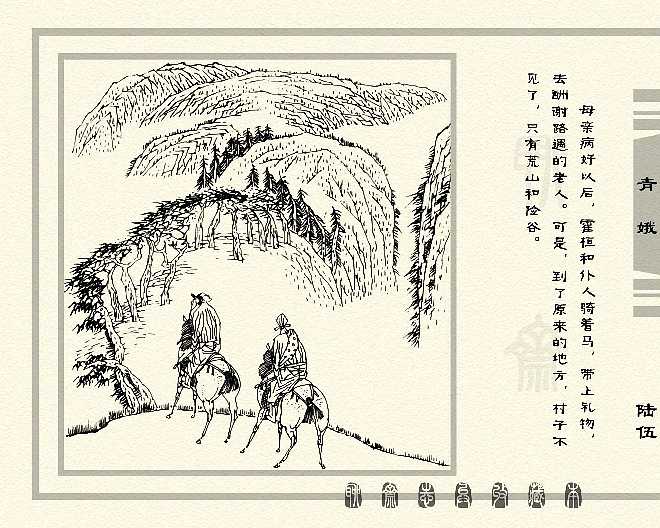 母亲病好以后，霍桓和仆人骑着马，带上礼物，
去酬谢路遇的老人。可是，到了原来的地方，村子不
见了，只有荒山和险谷。
青娥
陆伍
聊斋志异收藏本